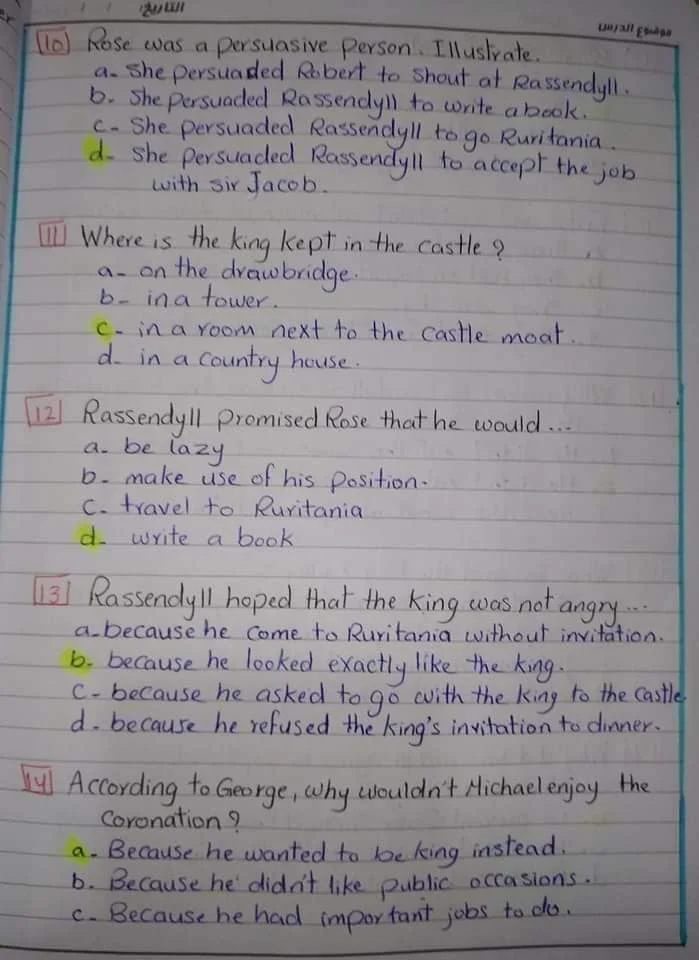 التاريخ: / /
موضوع الدرس
10 Rose was a persuasive person. Illustrate.
a- She persuaded Robert to shout at Rassendyll.
b- She persuaded Rassendyll to write a book.
c- She persuaded Rassendyll to go Ruritania.
d- She persuaded Rassendyll to accept the job
with sir Jacob.
11 Where is the king kept in the castle?
a- on the drawbridge.
b- in a tower.
c- in a room next to the castle moat.
d- in a country house.
12 Rassendyll promised Rose that he would ...
a- be lazy
b- make use of his position.
c- travel to Ruritania
d- write a book
13 Rassendyll hoped that the king was not angry ...
a- because he come to Ruritania without invitation.
b- because he looked exactly like the king.
c- because he asked to go with the king to the castle.
d- because he refused the king's invitation to dinner.
14 According to George, why wouldn't Michael enjoy the
coronation?
a- Because he wanted to be king instead.
b- Because he didn't like public occasions.
c- Because he had important jobs to do.